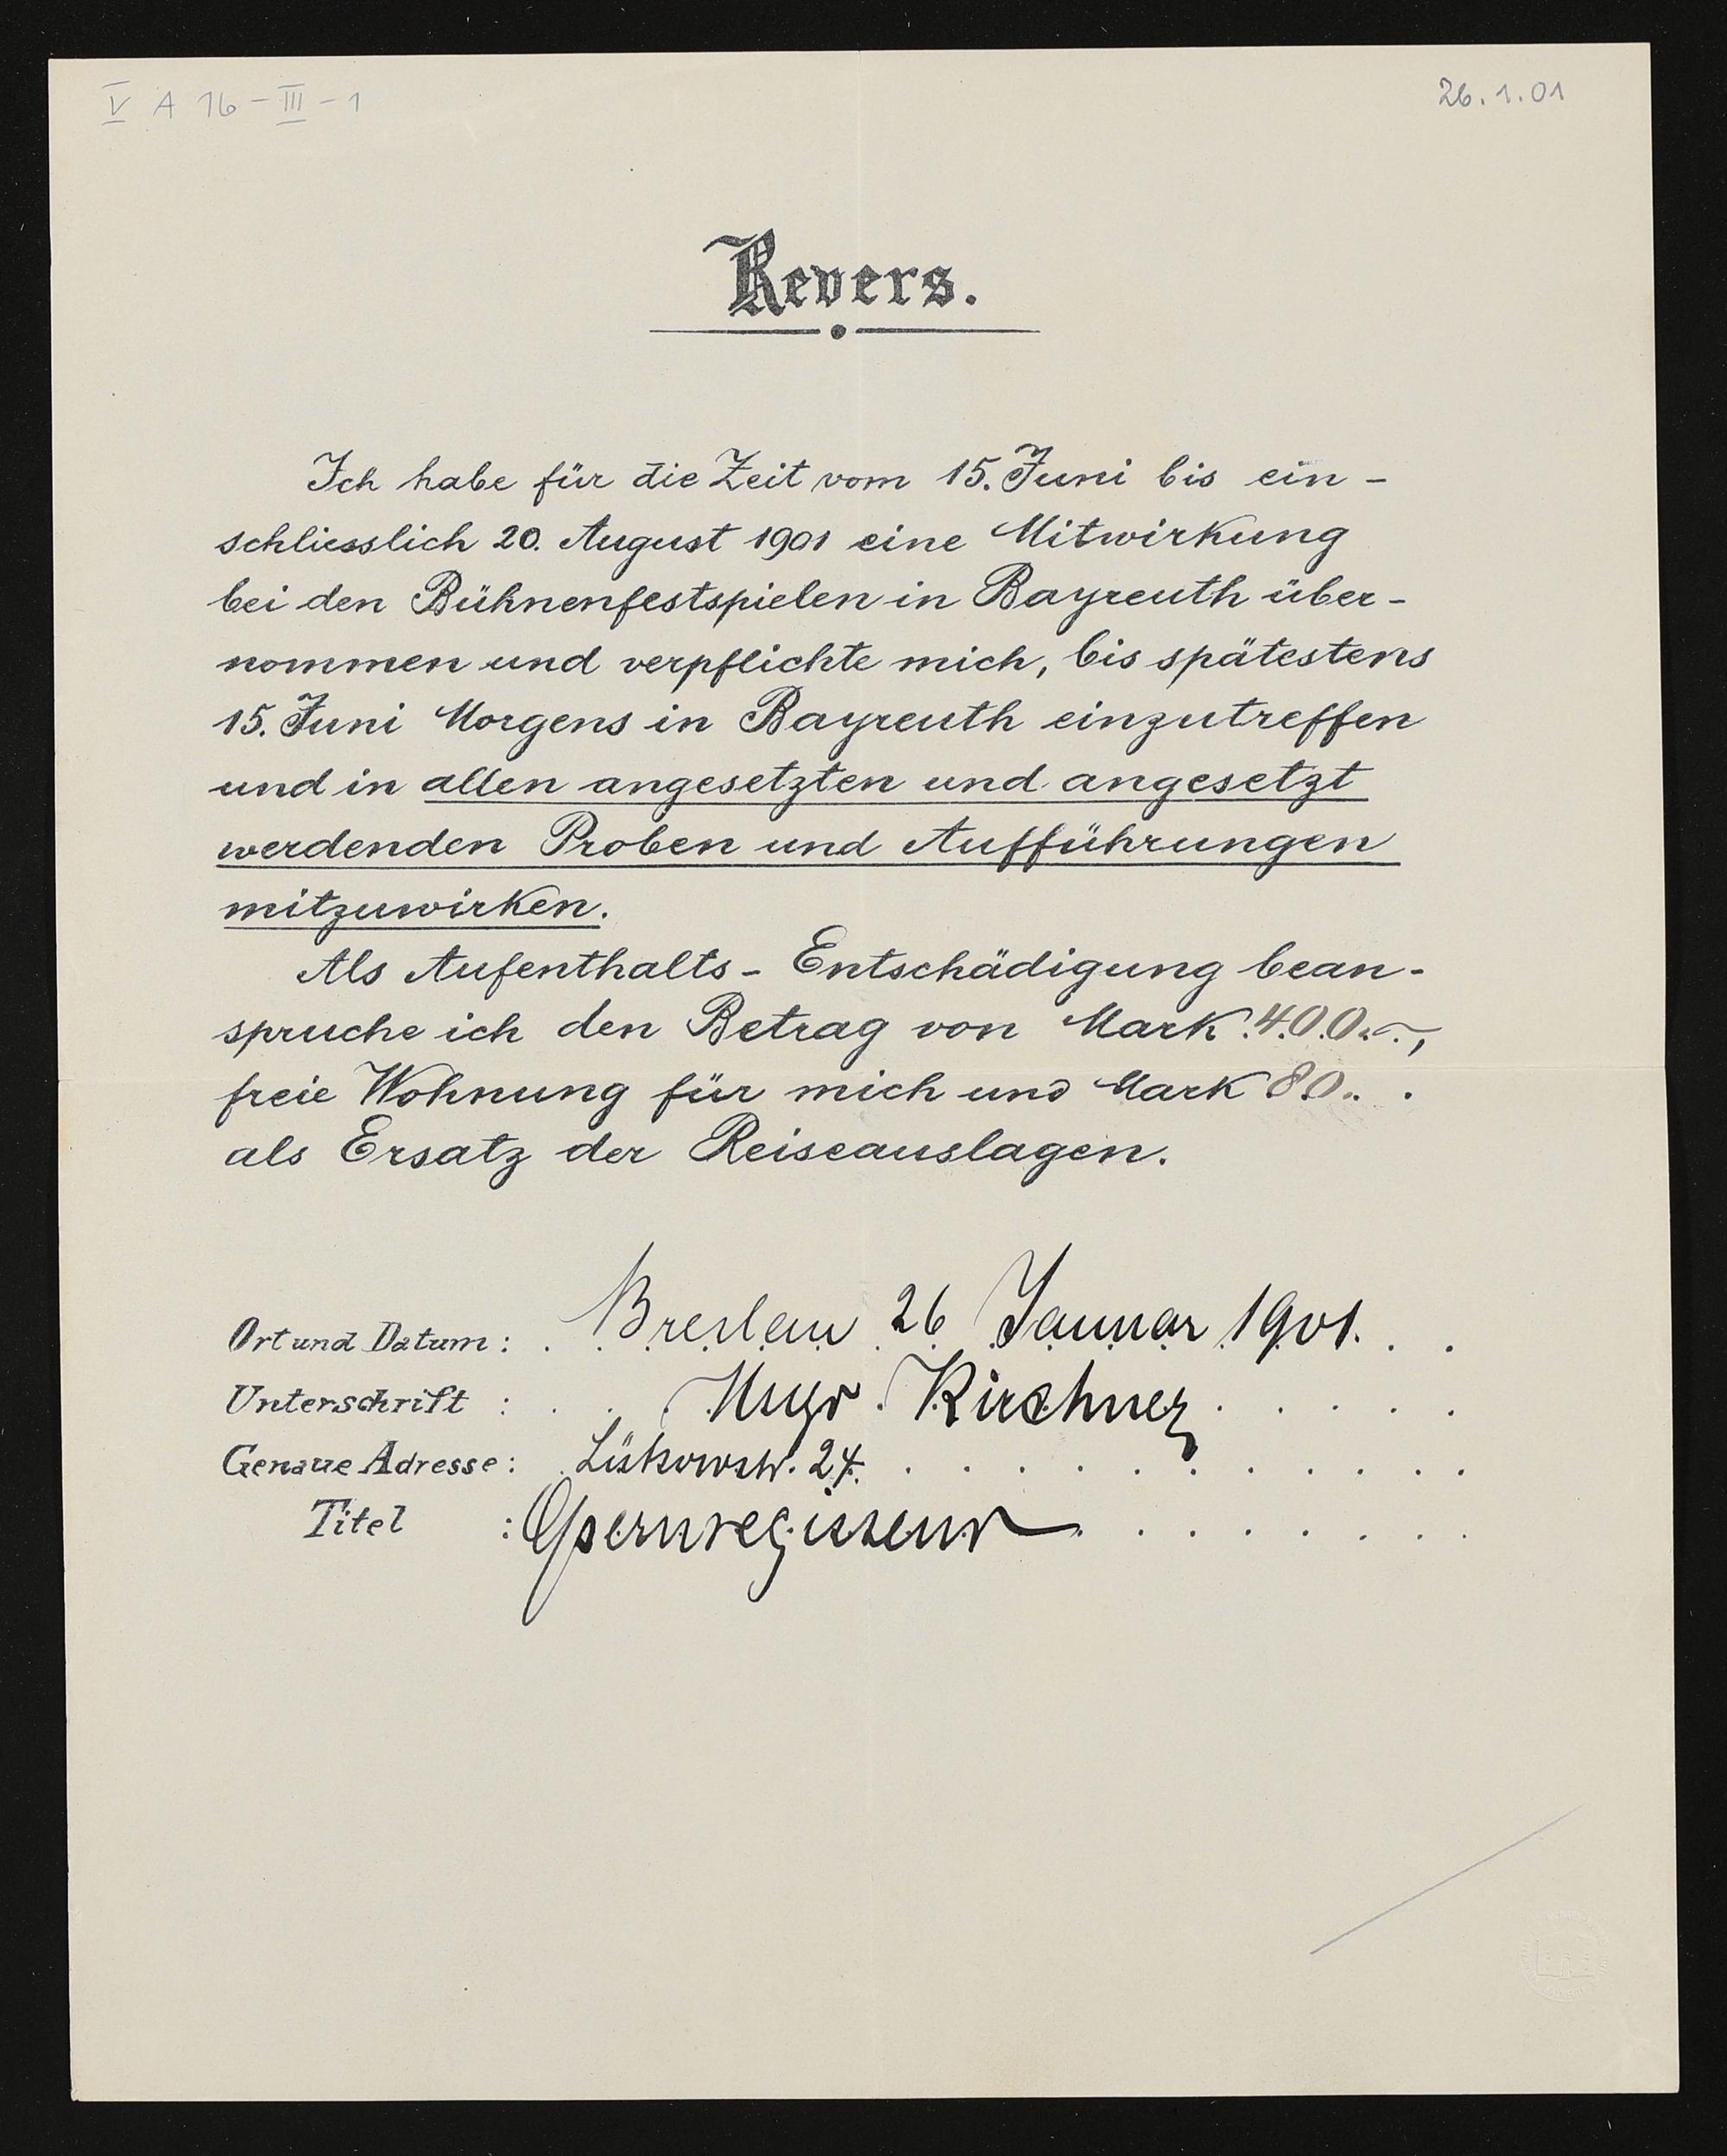 V A 16 - III - 1
26.1.01
Revers.
Ich habe für die Zeit vom 15. Juni bis ein-
schliesslich 20. August 1901 eine Mitwirkung
bei den Bühnenfestspielen in Bayreuth über-
nommen und verpflichte mich, bis spätestens
15. Juni Morgens in Bayreuth einzutreffen
und in allen angesetzten und angesetzt
werdenden Proben und Aufführungen
mitzuwirken.
Als Aufenthalts-Entschädigung bean-
spruche ich den Betrag von Mark 400.-,
freie Wohnung für mich und Mark 80..
als Ersatz der Reiseauslagen.
Ort und Datum: Breslau 26 Januar 1901.
Unterschrift: Hugo Kirchner
Genaue Adresse: 24.
Titel: Opernregisseur